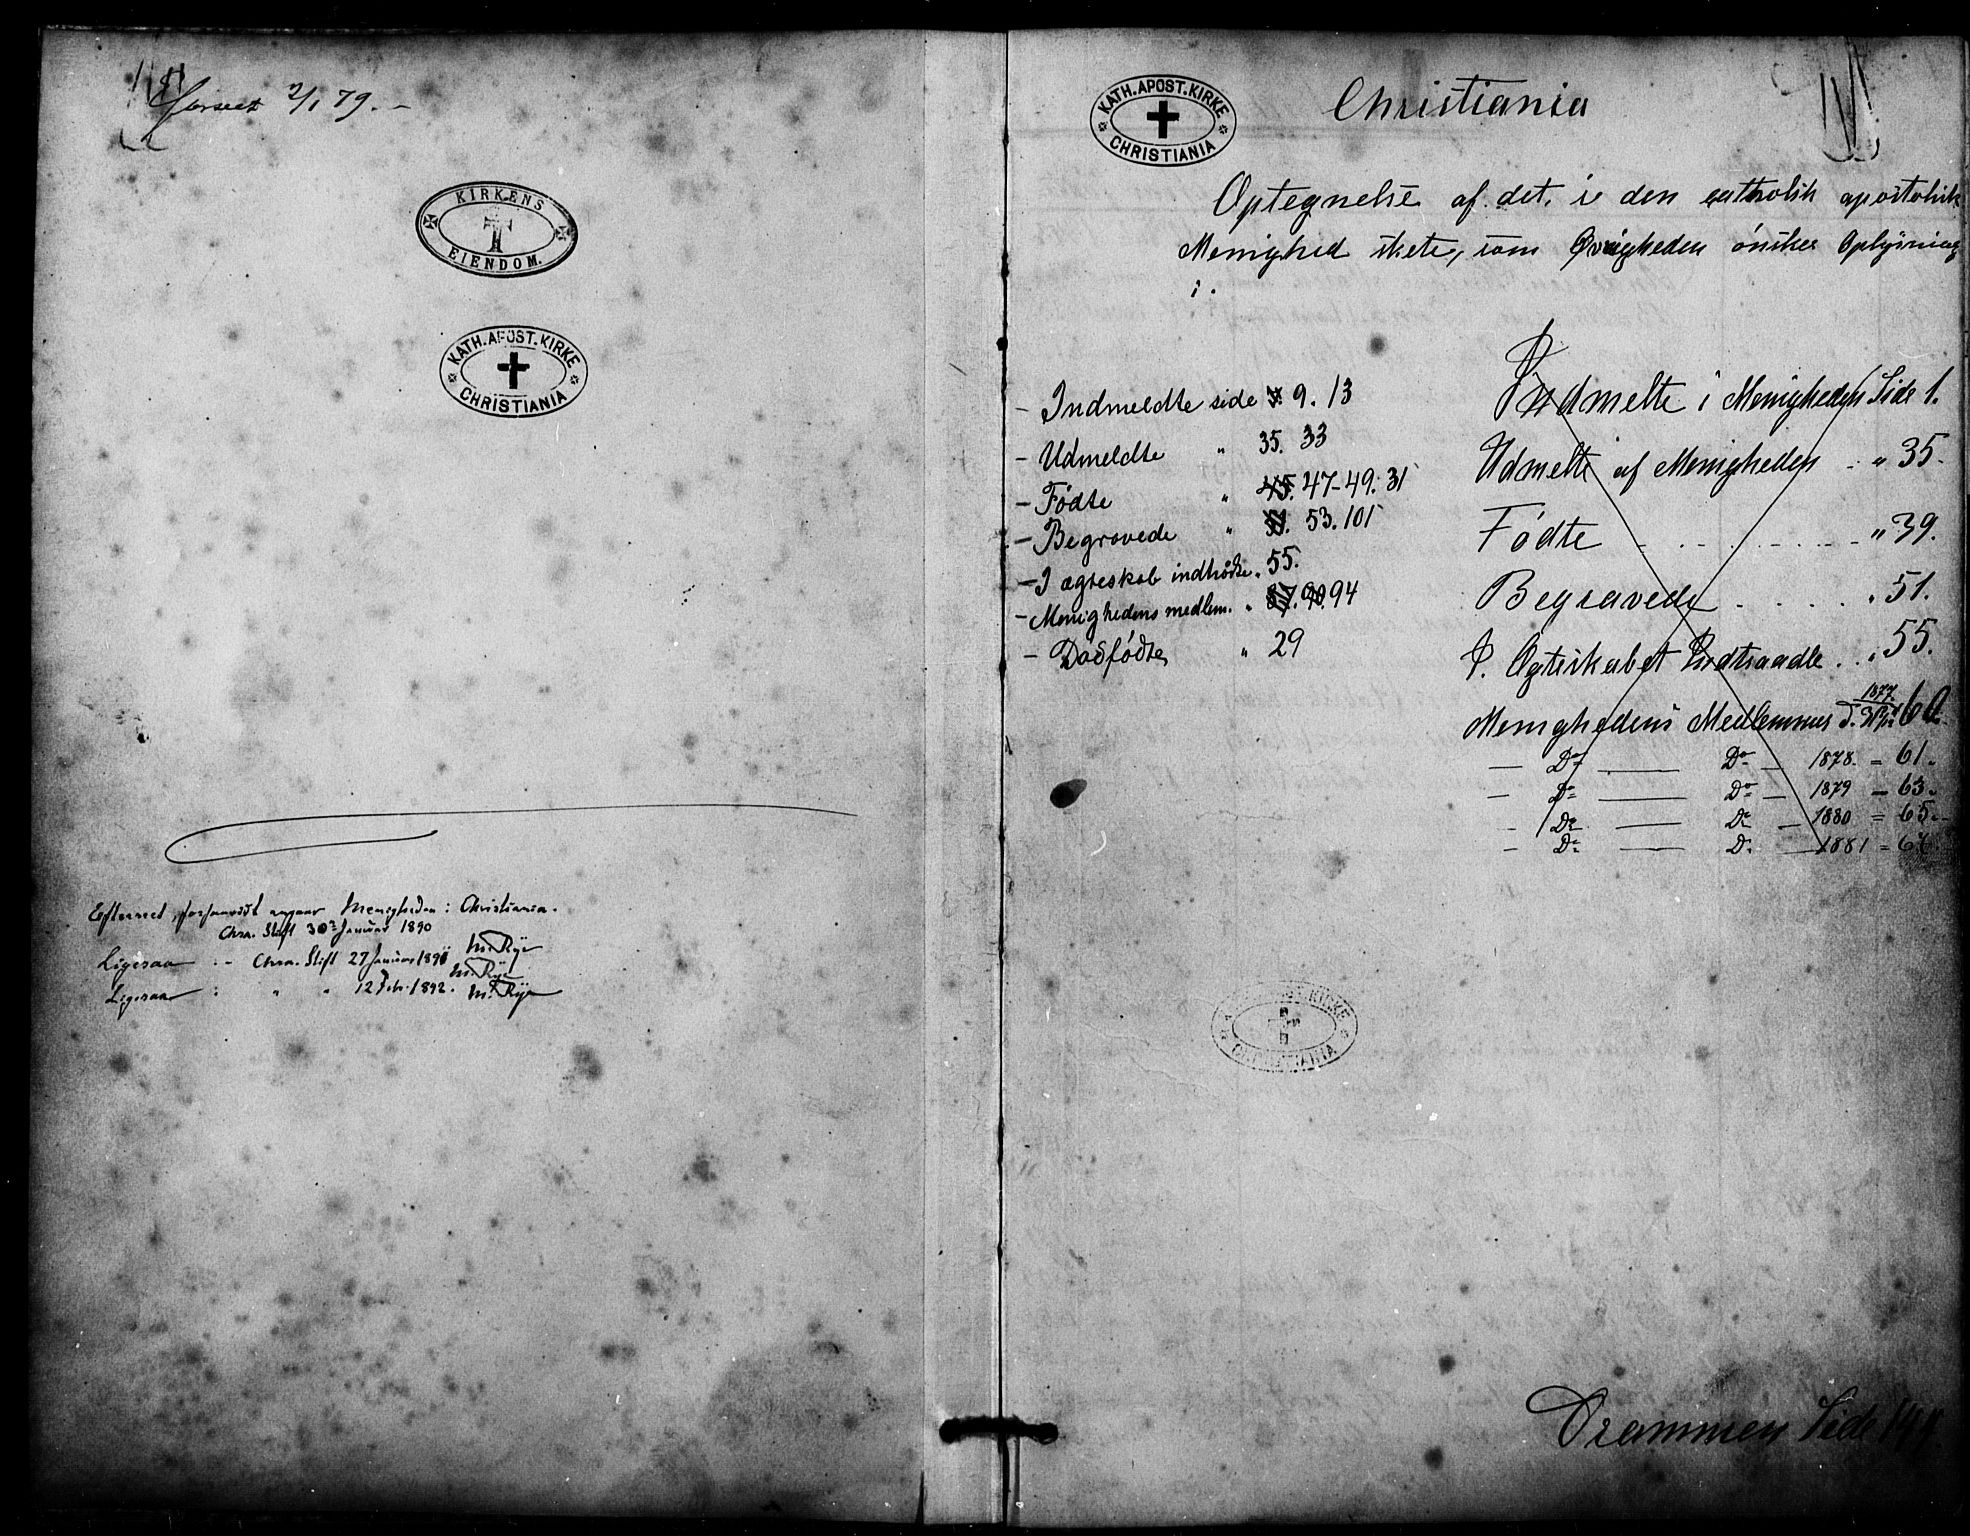 2/1 79. -
KIRKENS
EIENDOM.
KATH. APOST. KIRKE
CHRISTIANIA
Efterseet, forsaavidt angaar Menigheden i Christiania.
Chra. Stift 30te Januar 1890
M. Rye
Ligesaa :- Chra. Stift 27 Januar 1891
M. Rye
Ligesaa : " " 12 Feb. 1892. M. Rye
KATH. APOST. KIRKE
CHRISTIANIA
Christiania
Optegnelse af det, i den catholsk apostolisk
Menighed skete, som Øvrigheden önsker Oplysning
i.
- Indmeldte side 7. 9. 13
- Udmeldte " 35. 33
- Fødte " 45. 47-49. 31
- Begravede " 51. 53. 101
- I ægteskab indtrådte " 55.
- Menighedens medlem. " 87. 90. 94
- Dödfödte " 29
Indmelte i Menigheden Side 1.
Udmelte af Menigheden - " 35.
Födte - - - - " 39.
Begravede . . . . . " 51.
I Ægteskabet Indtraadte . . " 55.
Menighedens Medlemmer 1877 60.
— Do — Do — 1878. = 61.
— Do — Do — 1879 = 63.
- Do — Do — 1880 = 65.
- Do — Do — 1881 = 67.
KIRKE
Drammen Side 144